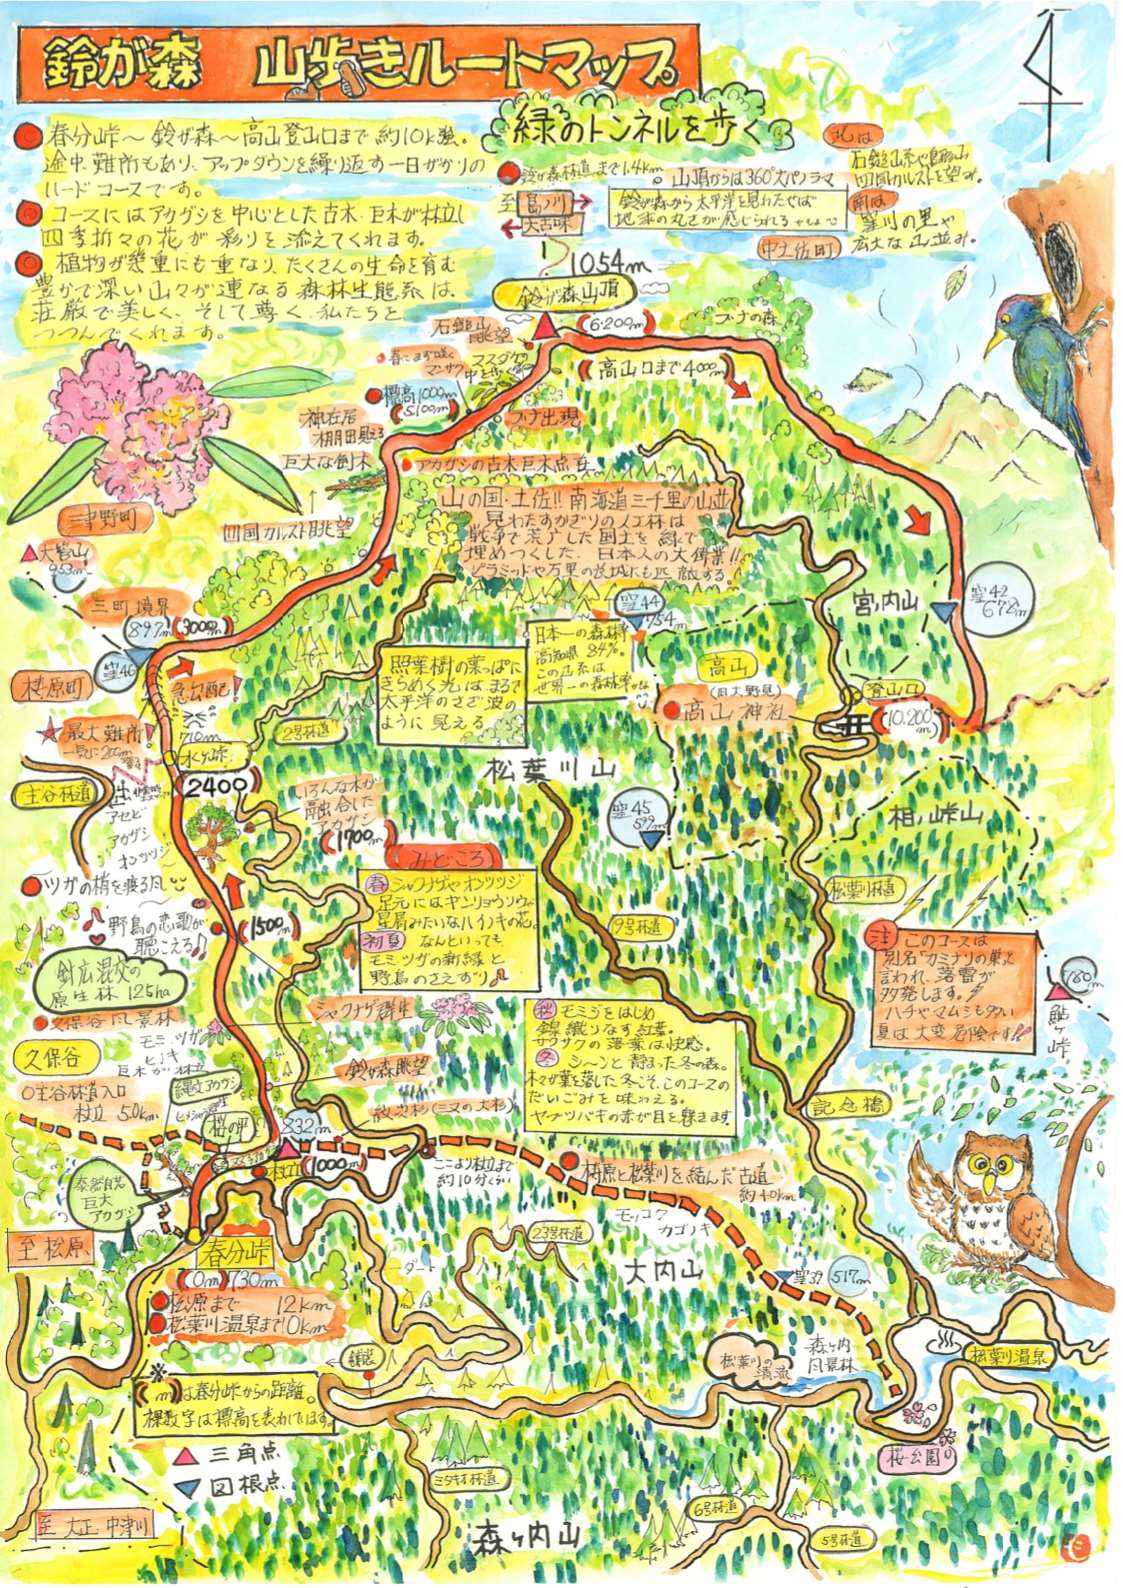 鈴が森 山歩きルートマップ
春分峠～鈴が森～高山登山口まで 約10k強。
途中、難所もあり、アップダウンを繰り返す一日がかりの
ハードコースです。
コースにはアカガシを中心とした古木・巨木が林立し
四季折々の花が彩りを添えてくれます。
植物が幾重にも重なり、たくさんの生命を育む
豊かで深い山々が連なる森林生態系は、
荘厳で美しく、そして尊く、私たちを
つつんでくれます。
緑のトンネルを歩く
鈴が森林道まで1.4km
至 島ノ川
大古味
山頂からは360°大パノラマ
鈴が森から太平洋を見わたせば
地球の丸さが感じられる
北は
石鎚山系や
四国カルストを望み。
南は
窪川の里や
広大な山並み。
中土佐町
1054m
鈴が森山頂
(6.200m)
ブナの森
石鎚山
眺望
春にまず咲く
マンサク
スズタケの
中を歩く
(高山口まで4000m)
標高1000m
(5100m)
ブナ出現
神在居
棚田見える
巨大な倒木
アカガシの古木巨木点在。
四国カルスト眺望
津野町
953m
三町境界
897m
(3000m)
窪46
梼原町
急勾配!
山の国・土佐!!南海道三千里の山並
見わたすかぎりの人工林は
戦争で荒廃した国土を緑で
埋めつくした、日本人の大偉業!!
ピラミッドや万里の長城にも匹敵する
窪44
754m
日本一の森林率
高知県84%。
この山系は
世界一の森林率かな
照葉樹の葉っぱに
きらめく光は、まるで
太平洋のさざ波の
ように見える
宮ノ内山
窪42
672m
高山
(旧大野見)
高山神社
登山口
(10.200m)
最大難所!
一気に200m
710m
水ヶ峠
2号林道
2400
主谷林道
アセビ
アカガシ
オンツツジ
いろんな木が
融合した
アカガシ
(1700m)
松葉川山
窪45
599m
相ノ峠山
松葉川林道
みどころ
春 シャクナゲやオンツツジ
足元にはギンリョウソウが
星屑みたいなハイノキの花。
初夏 なんといっても
モミ・ツガの新緑と
野鳥のさえずり
ツガの梢を渡る風
野鳥の恋歌が
聴こえる
(1500m)
針広混交の
原生林125ha
9号林道
注 このコースは
別名"カミナリの巣"と
言われ、落雷が
多発します。
ハチやマムシも多い
夏は大変危険です!!
780m
鮎ヶ峠
シャクナゲ群生
久保谷風景林
モミ・ツガ
ヒノキ
巨木が林立
久保谷
主谷林道入口
杖立 5.0km
縄文アカガシ
桜の平
鈴が森眺望
秋 モミジをはじめ
錦織りなす紅葉。
サクサクの落葉は快感。
冬 シーンと静まった冬の森。
木々が葉を落した冬こそ、このコースの
だいごみを味わえる。
ヤブツバキの赤が目を魅きます
記念橋
832m
杖立
(1000m)
ここより杖立まで
約10分くらい
梼原と松葉川を結んだ古道
約4.0km
モッコク
カゴノキ
泰然自若
巨大
アカガシ
至 松原
春分峠
(0m)730m
松原まで 12km
松葉川温泉まで10km
23号林道
ダート
大内山
窪39
517m
舗装
松葉川の
清流
森ヶ内
風景林
松葉川温泉
桜公園
※( m)は春分峠からの距離。
裸数字は標高を表わしています。
三角点
図根点
至 大正 中津川
森ヶ内山
6号林道
5号林道